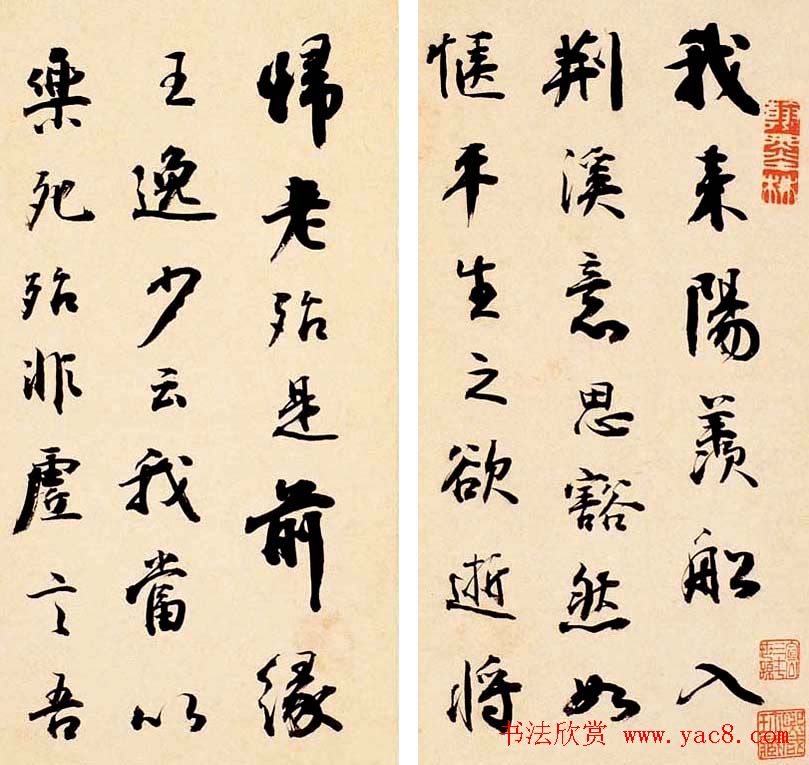 我来陽羡船入
荆溪意思豁然如
惬平生之欲逝将
歸老殆是前緣
王逸少云我當以
樂死殆非虚言吾
书法欣赏 www.yac8.com